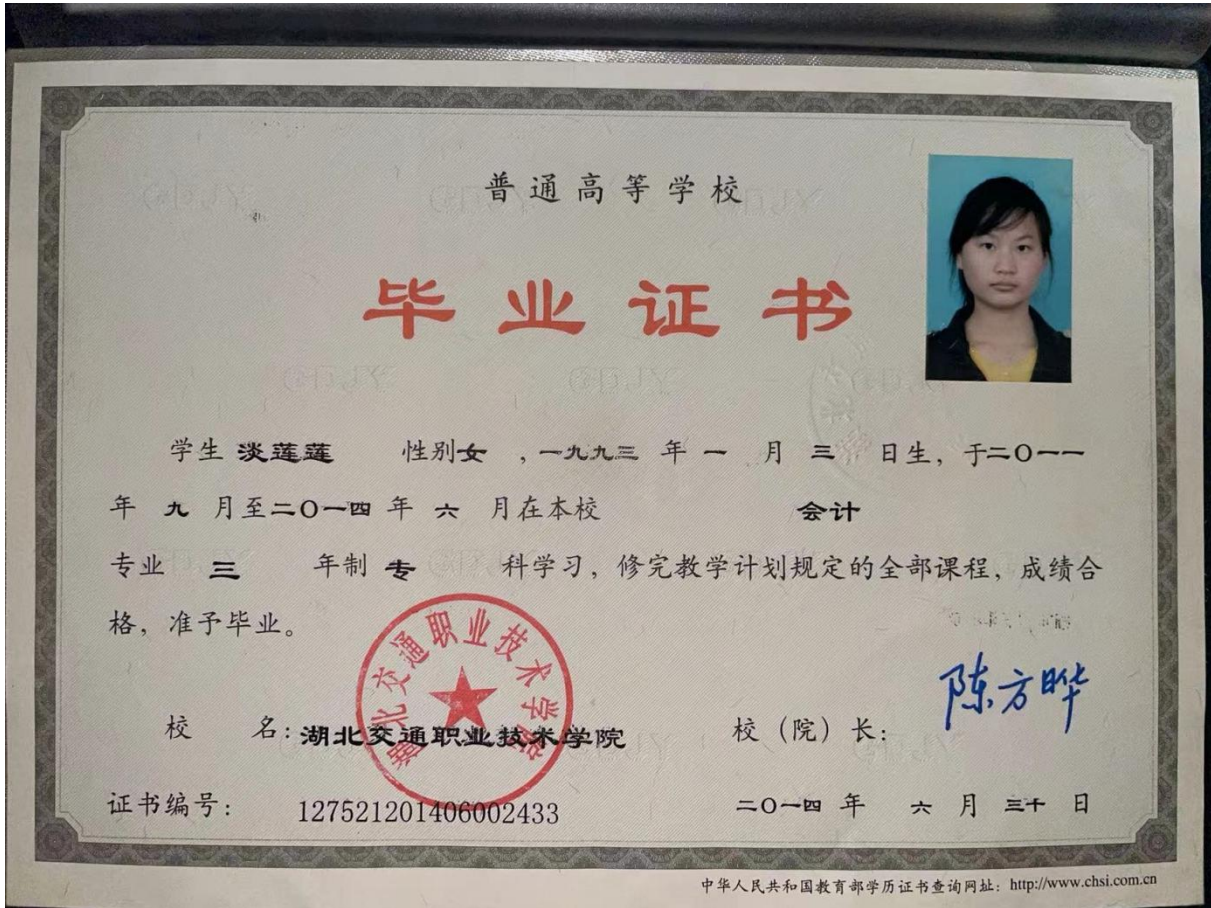 普通高等学校
毕业证书
学生 淡莲莲 性别女 ,一九九三 年 一 月 三 日生，于二O一一
年 九 月至二O一四 年 六 月在本校 会计
专业 三 年制 专 科学习，修完教学计划规定的全部课程，成绩合
格，准予毕业。
湖北交通职业技术学院
陈方晔
校 名：湖北交通职业技术学院 校（院）长：
证书编号： 127521201406002433 二O一四 年 六 月 三十 日
中华人民共和国教育部学历证书查询网址：http://www.chsi.com.cn